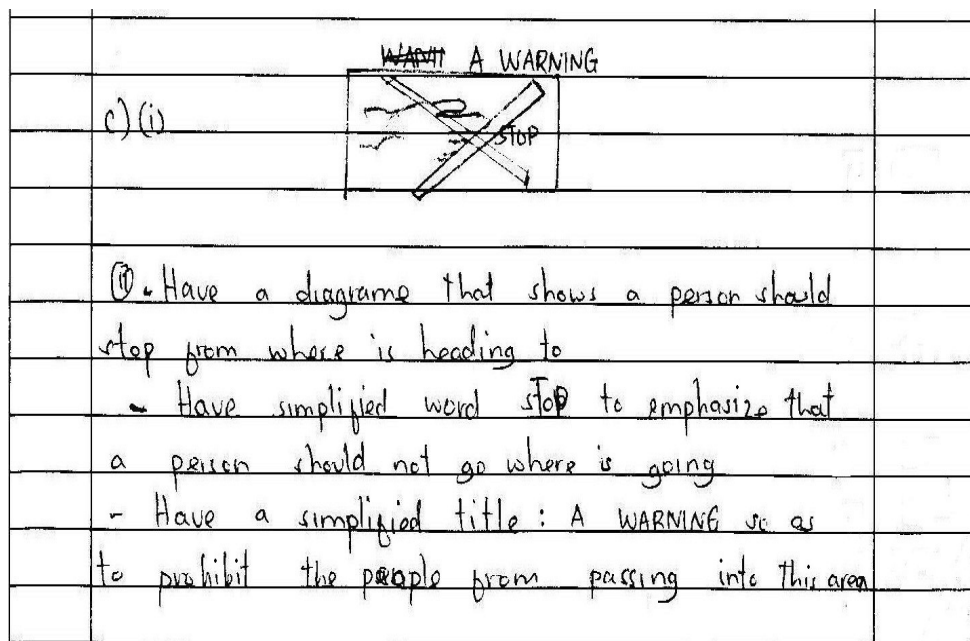 A WARNING
c) (i)
STOP
(ii) - Have a diagrame that shows a person should
stop from where is heading to
- Have simplified word STOP to emphasize that
a person should not go where is going
- Have a simplified title : A WARNING so as
to prohibit the people from passing into this area